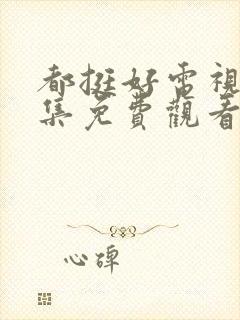 都挺好电視
集免費觀看
心碑